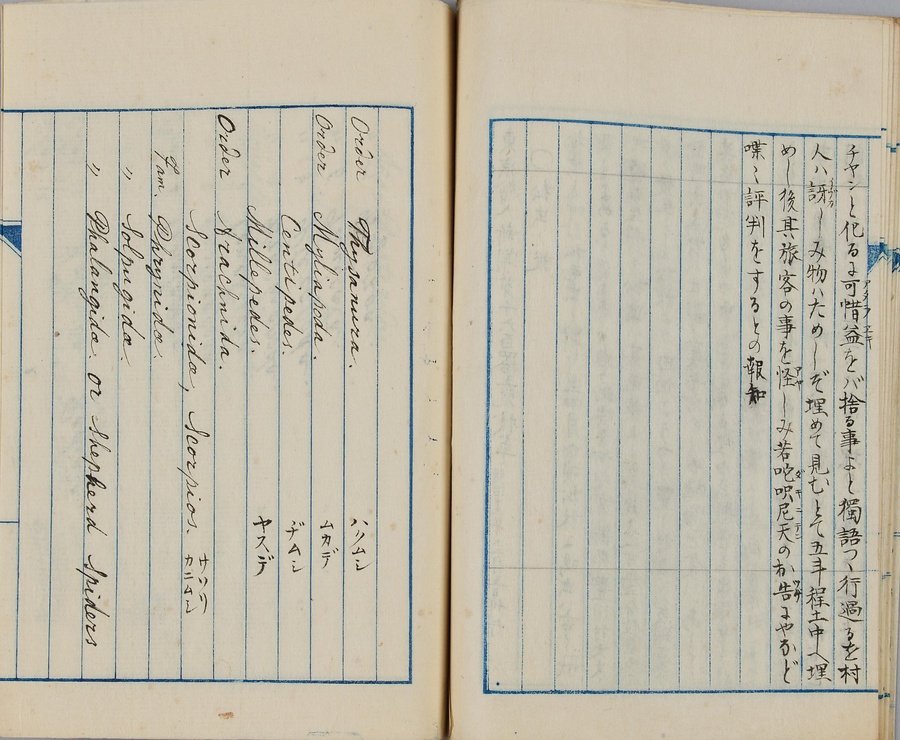 チヤンと化るに可惜益をバ捨る事よと獨語つゝ行過るを村
人ハ訝しみ物ハためしぞ埋めて見むとて五年程土中へ埋
めし後其旅客の事を怪しみ若咜呎尼天のお告にやなど
喋々評判をするとの報知
Order Thysanura. ハリムシ
Order Myliapoda. ムカデ
Centipedes. ヂムシ
Millepedes. ヤスデ
Order Arachnida.
Scorpionidæ, Scorpios. サソリ カニムシ
Fam. Phrynidæ.
〃 Solpugidæ.
〃 Phalangidæ. or Shepherd Spiders